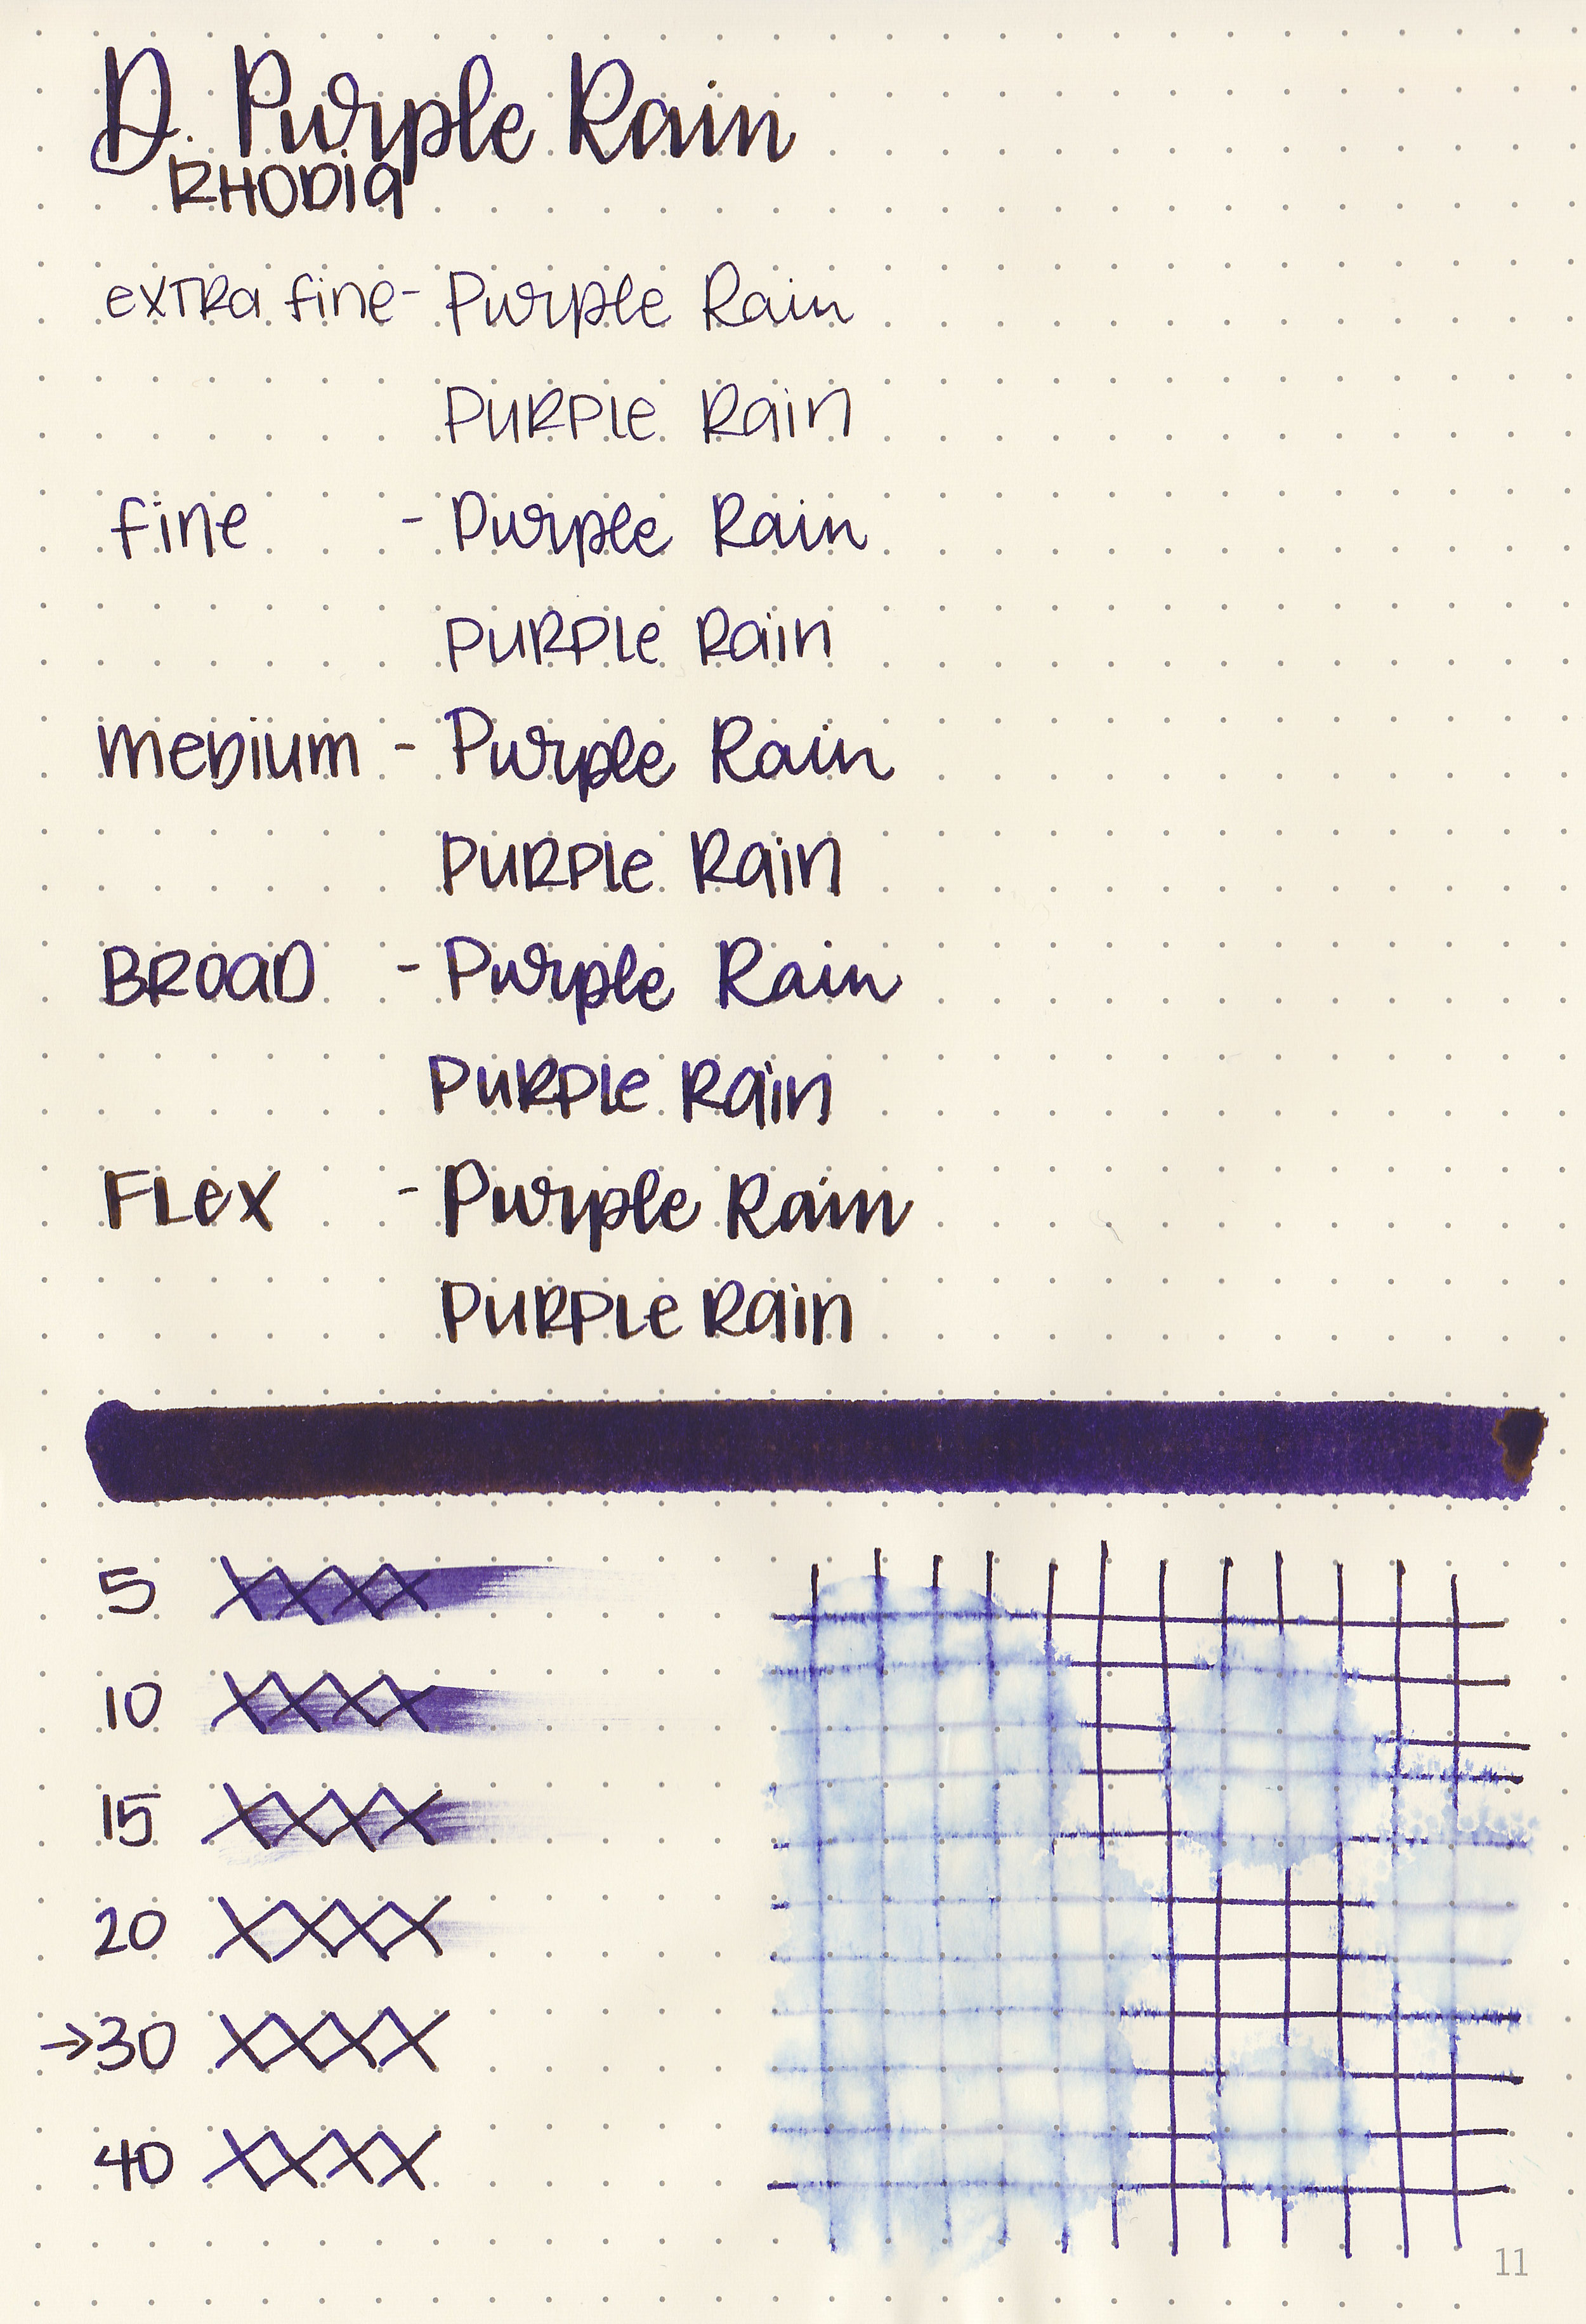 D. Purple Rain
RHODIA
extra fine- Purple Rain
PURPLE Rain
fine - Purple Rain
PURPLE Rain
meDium - Purple Rain
PURPLe Rain
BROAD - Purple Rain
PURPLe Rain
FLex - Purple Rain
PURPLe Rain
5 XXXX
10 XXXX
15 XXXX
20 XXXX
→30 XXXX
40 XXXX
11